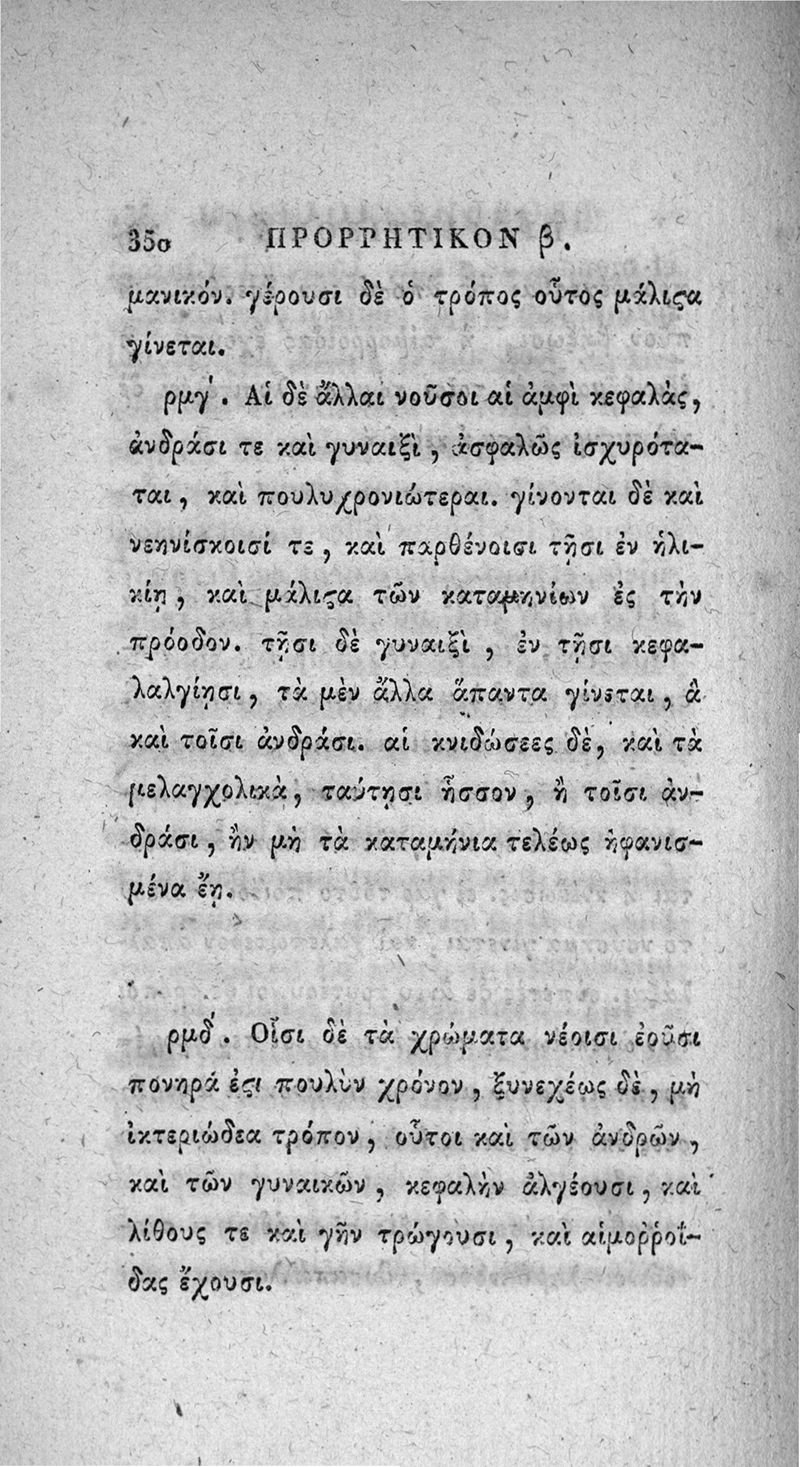 350 ΠΡΟΡΡΗΤΙΚΟΝ β.
μανικόν. γέρουσι δὲ ὁ τρόπος οὗτος μάλιϛα
γίνεται.
ρμγ'. Αἱ δὲ ἄλλαι νοῦσοι αἱ ἀμφὶ κεφαλὰς,
ἀνδράσι τε καὶ γυναιξὶ, ἀσφαλῶς ἰσχυρότα-
ται, καὶ πουλυχρονιώτεραι. γίνονται δὲ καὶ
νεηνίσκοισί τε, καὶ παρθένοισι τῇσι ἐν ἡλι-
κίῃ, καὶ μάλιϛα τῶν καταμηνίων ἐς τὴν
πρόοδον. τῇσι δὲ γυναιξὶ, ἐν τῇσι κεφα-
λαλγίῃσι, τὰ μὲν ἄλλα ἅπαντα γίνεται, ἃ
καὶ τοῖσι ἀνδράσι. αἱ κνιδώσεες δὲ, καὶ τὰ
μελαγχολικὰ, ταύτῃσι ἧσσον, ἢ τοῖσι ἀν-
δράσι, ἢν μὴ τὰ καταμήνια τελέως ἠφανισ-
μένα ἔῃ.
ρμδ'. Οἷσι δὲ τὰ χρώματα νέοισι ἐοῦσι
πονηρά ἐϛι πουλὺν χρόνον, ξυνεχέως δὲ, μὴ
ἰκτεριώδεα τρόπον, οὗτοι καὶ τῶν ἀνδρῶν,
καὶ τῶν γυναικῶν, κεφαλὴν ἀλγέουσι, καὶ
λίθους τε καὶ γῆν τρώγουσι, καὶ αἱμοῤῥοΐ-
δας ἔχουσι.